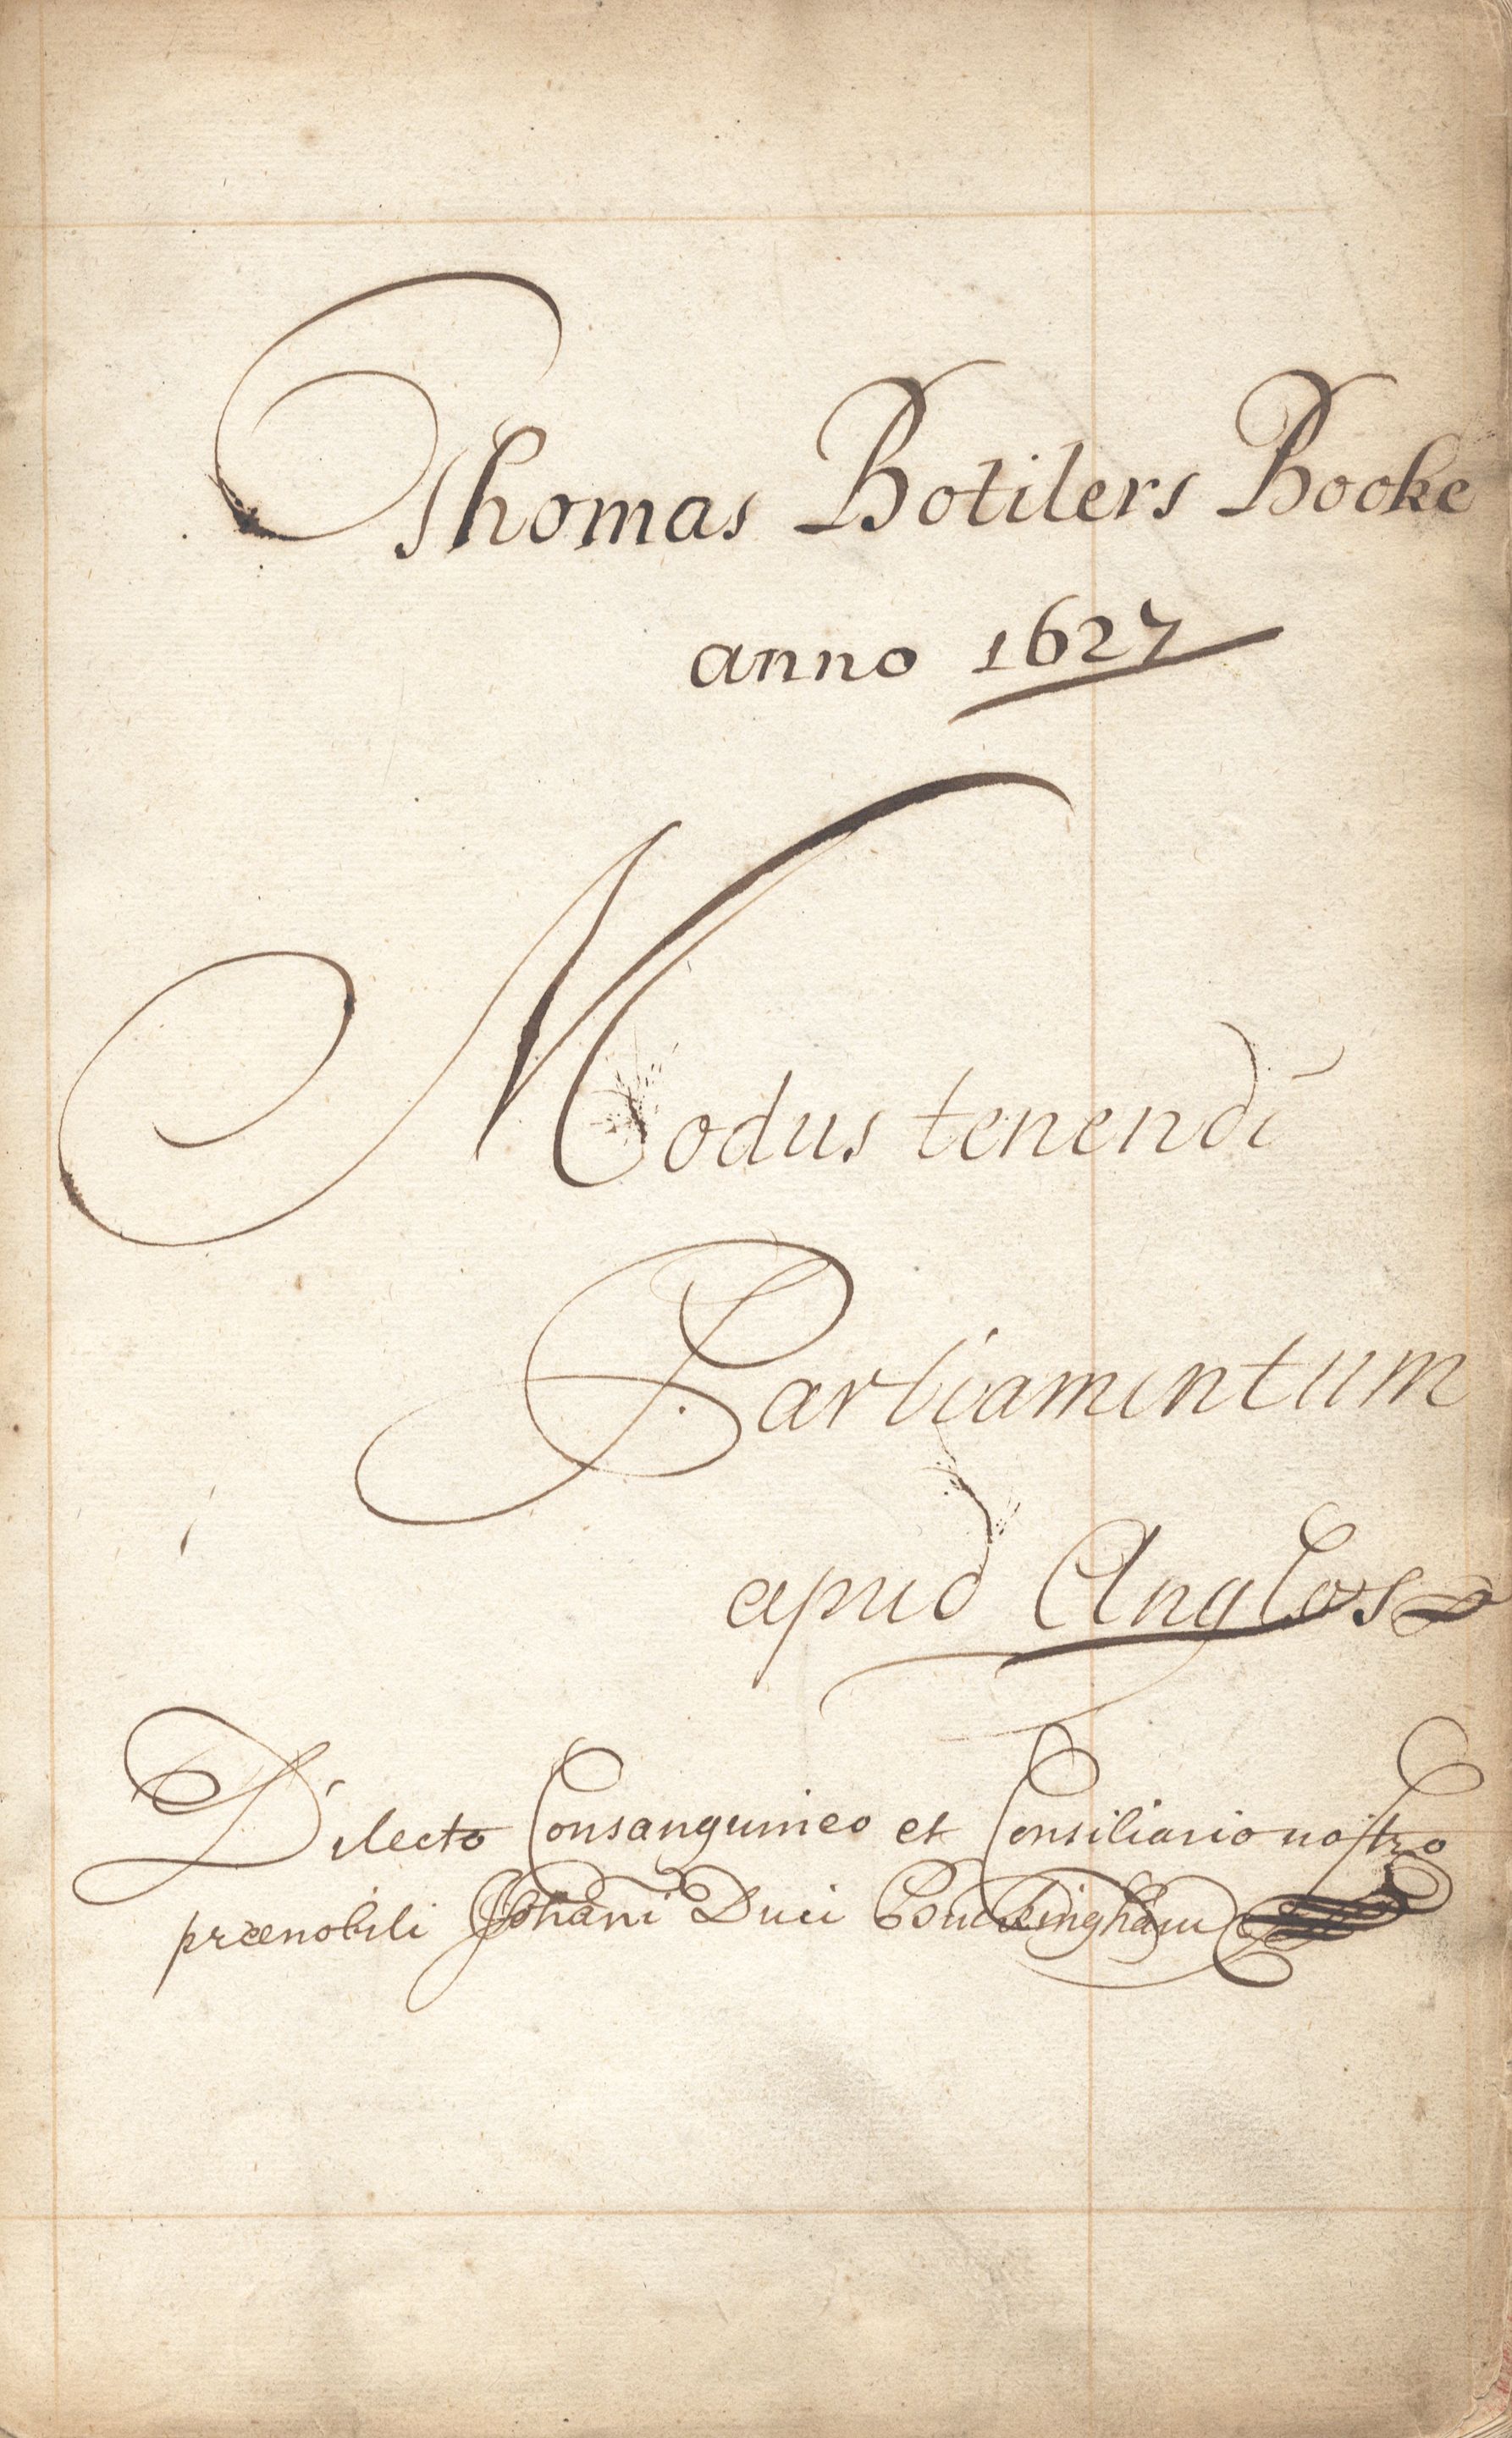 Thomas Botilers Booke
anno 1627
Modus tenendi
Parliamentum
apud Anglos
Dilecto Consanguineo et Consiliario nostro
præenobili Johani Duci Bouckingham